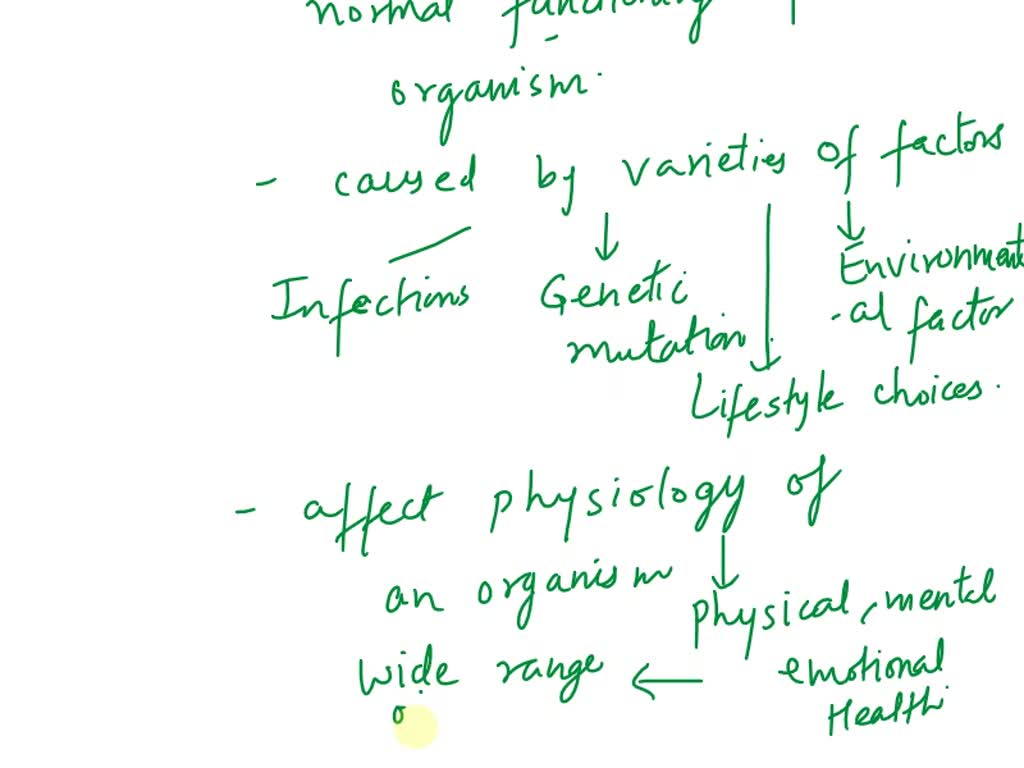 normal functioning
organism.
- caused by varieties of factors
Infections Genetic Environment
mutation -al factor
Lifestyle choices.
- affect physiology of
an organism physical, mental
wide range emotional
o Health